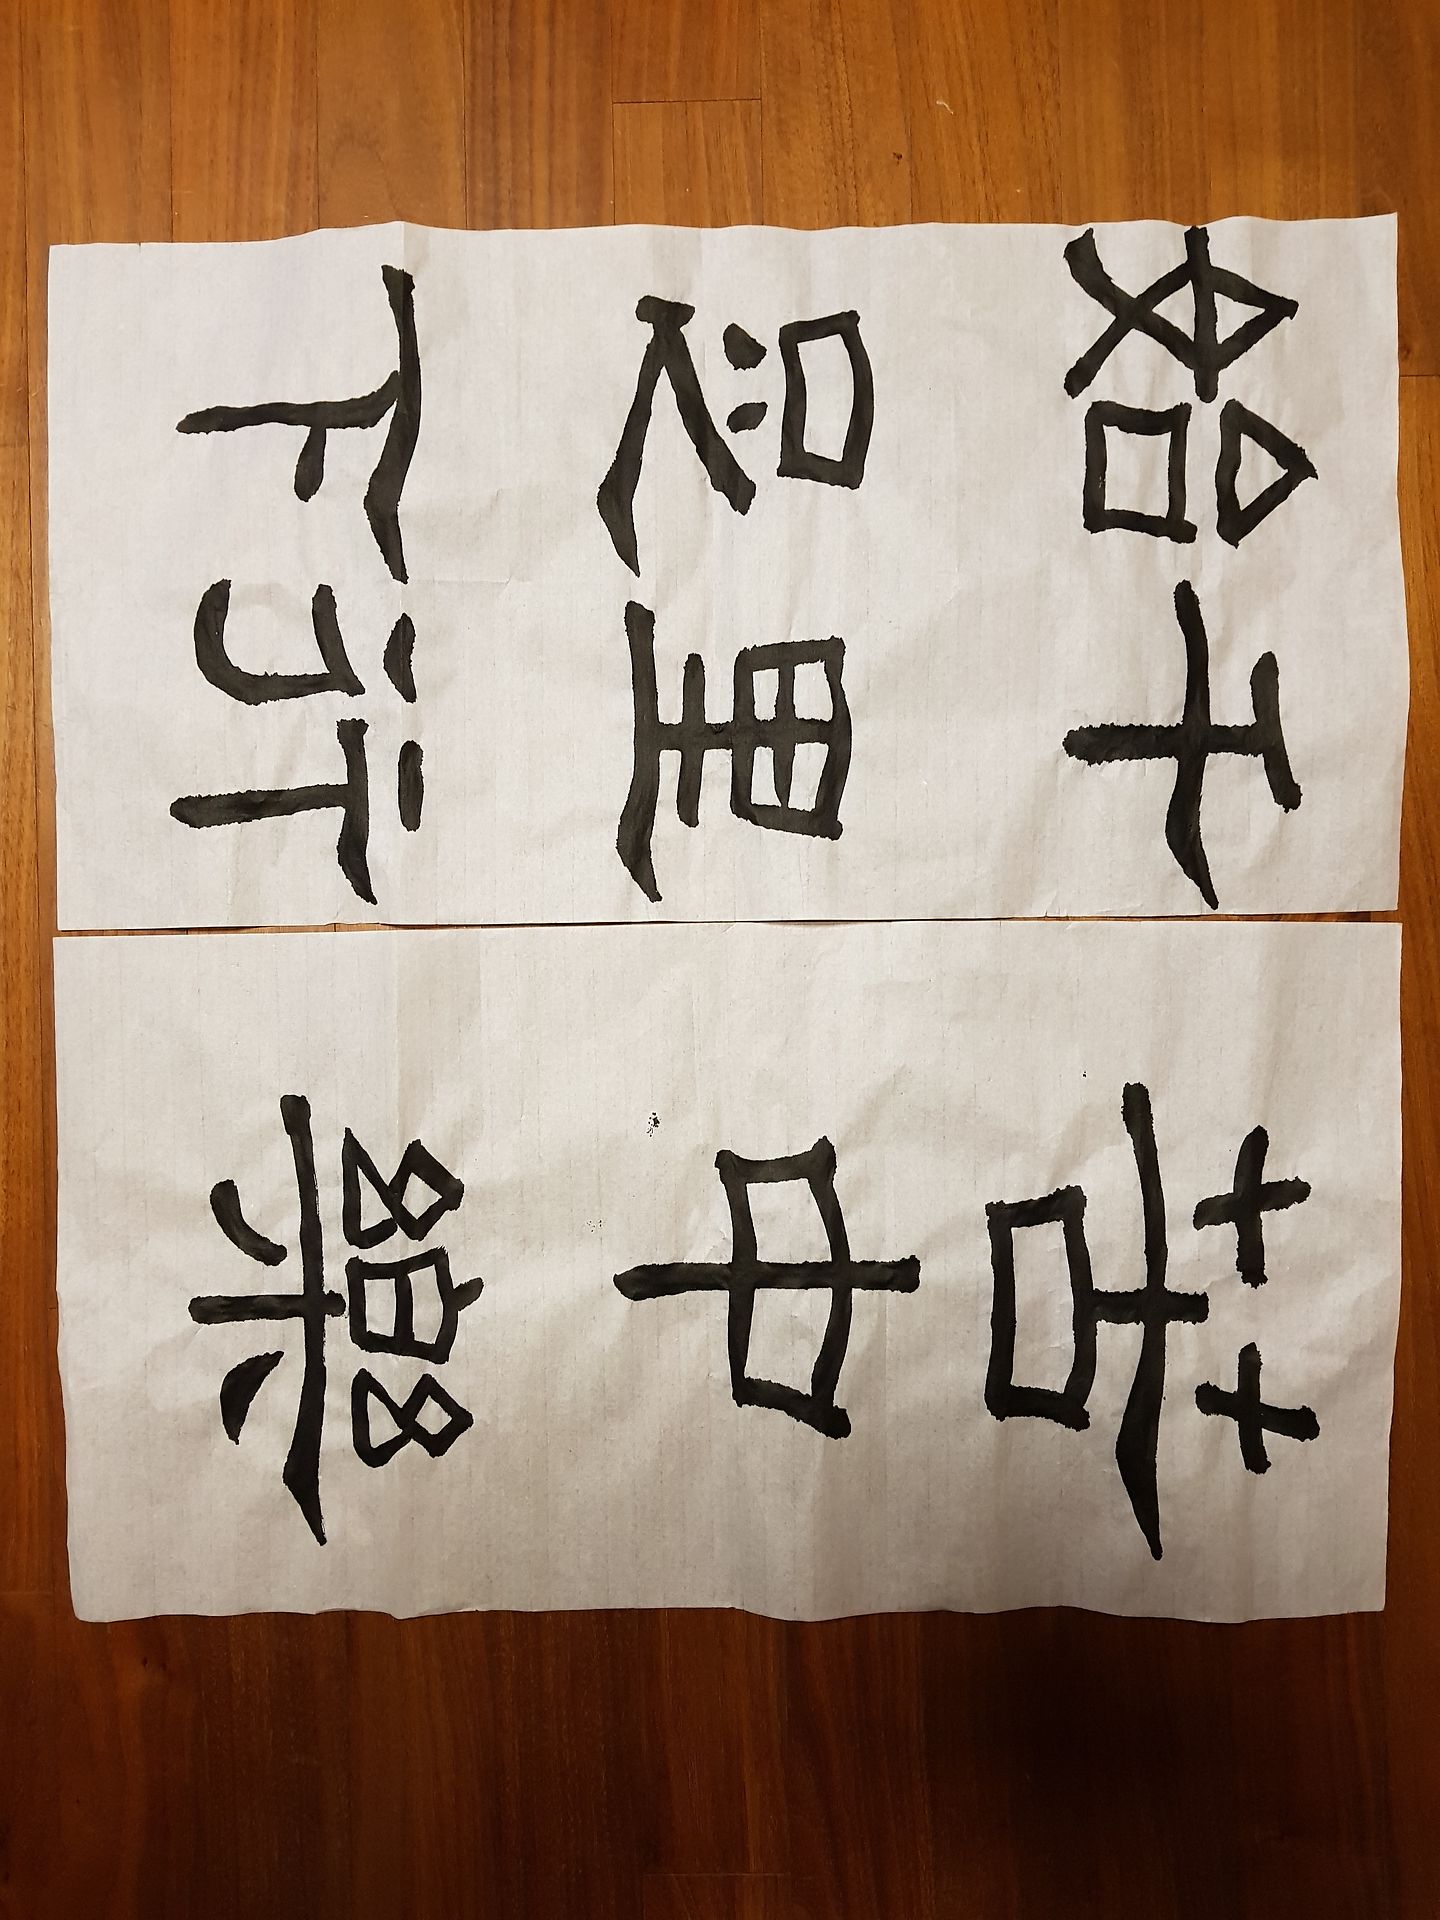 苦中樂
千里行
始足下